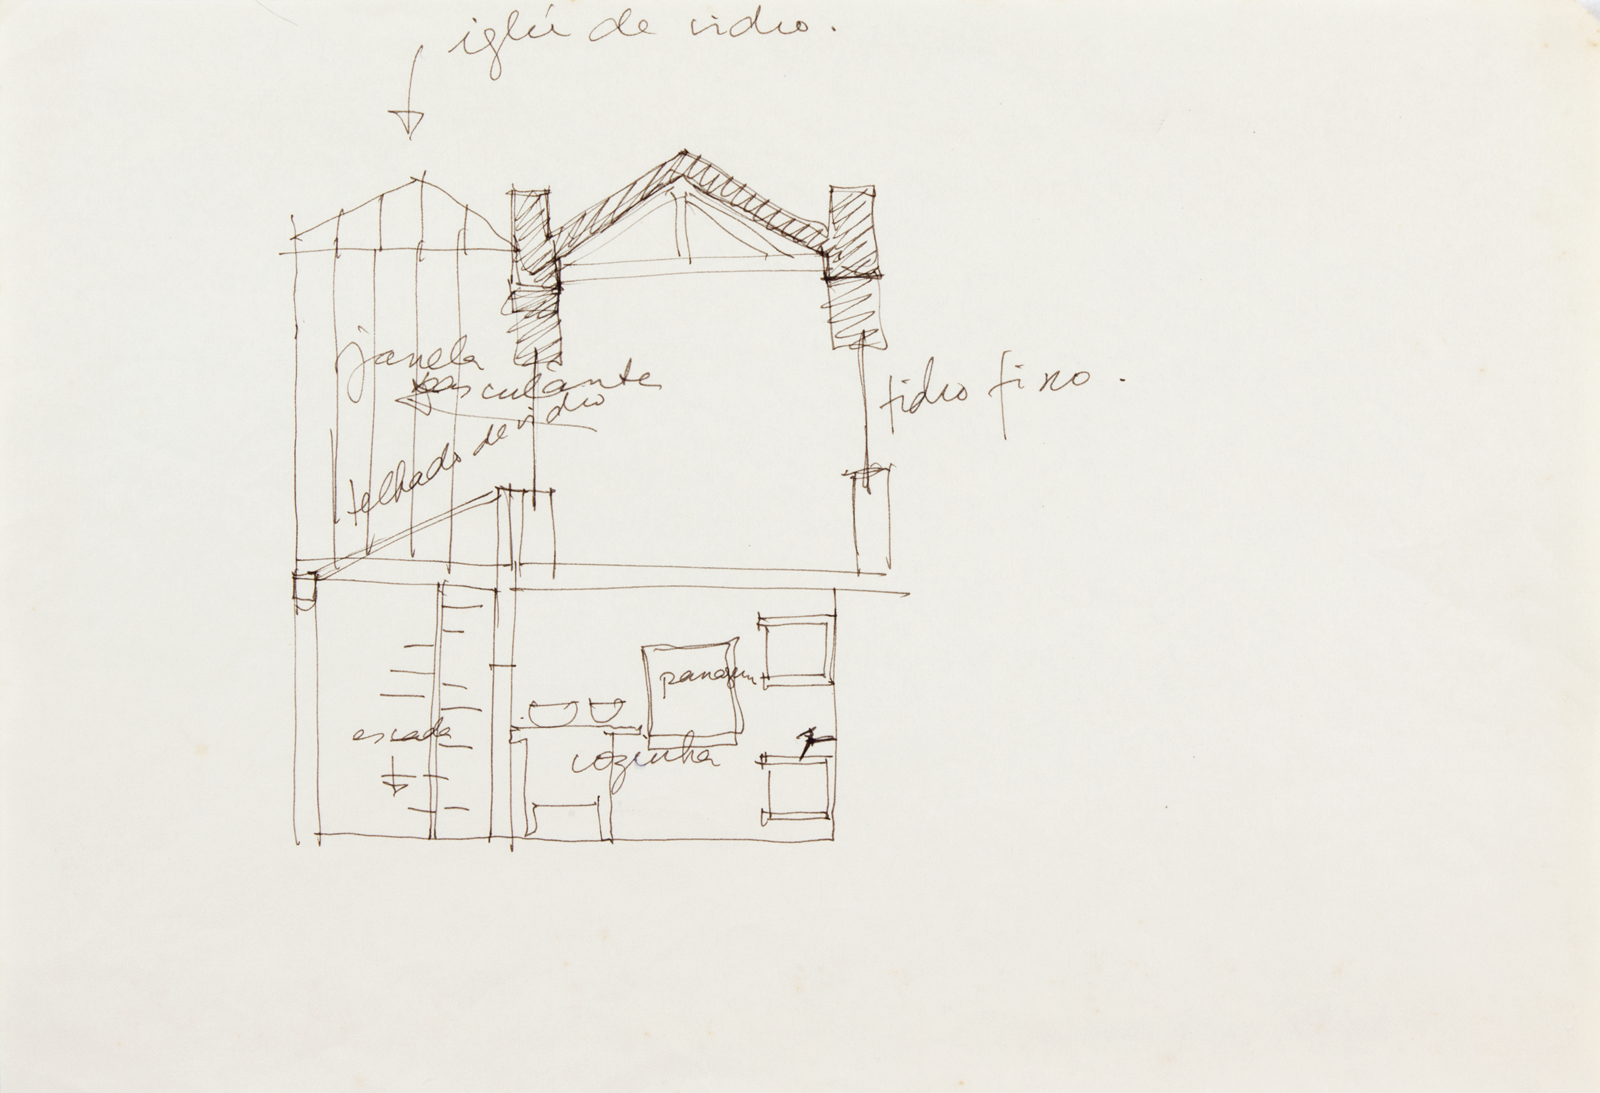 iglú de vidro.
janela
basculante
telhado de vidro
vidro fixo.
escada
cozinha